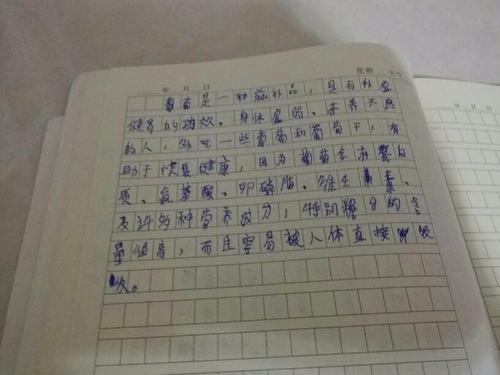 年 月 日 星期 天气
葡萄是一种滋补品，具有补虚
健胃的功效。身体虚弱、营养不良
的人，多吃一些葡萄和葡萄干，有
助于恢复健康，因为葡萄含有蛋白
质、氨基酸、卵磷脂、维生素、
及矿物种营养成分，特别糖分的含
量很高，而且容易被人体直接吸
收。
年 月 日